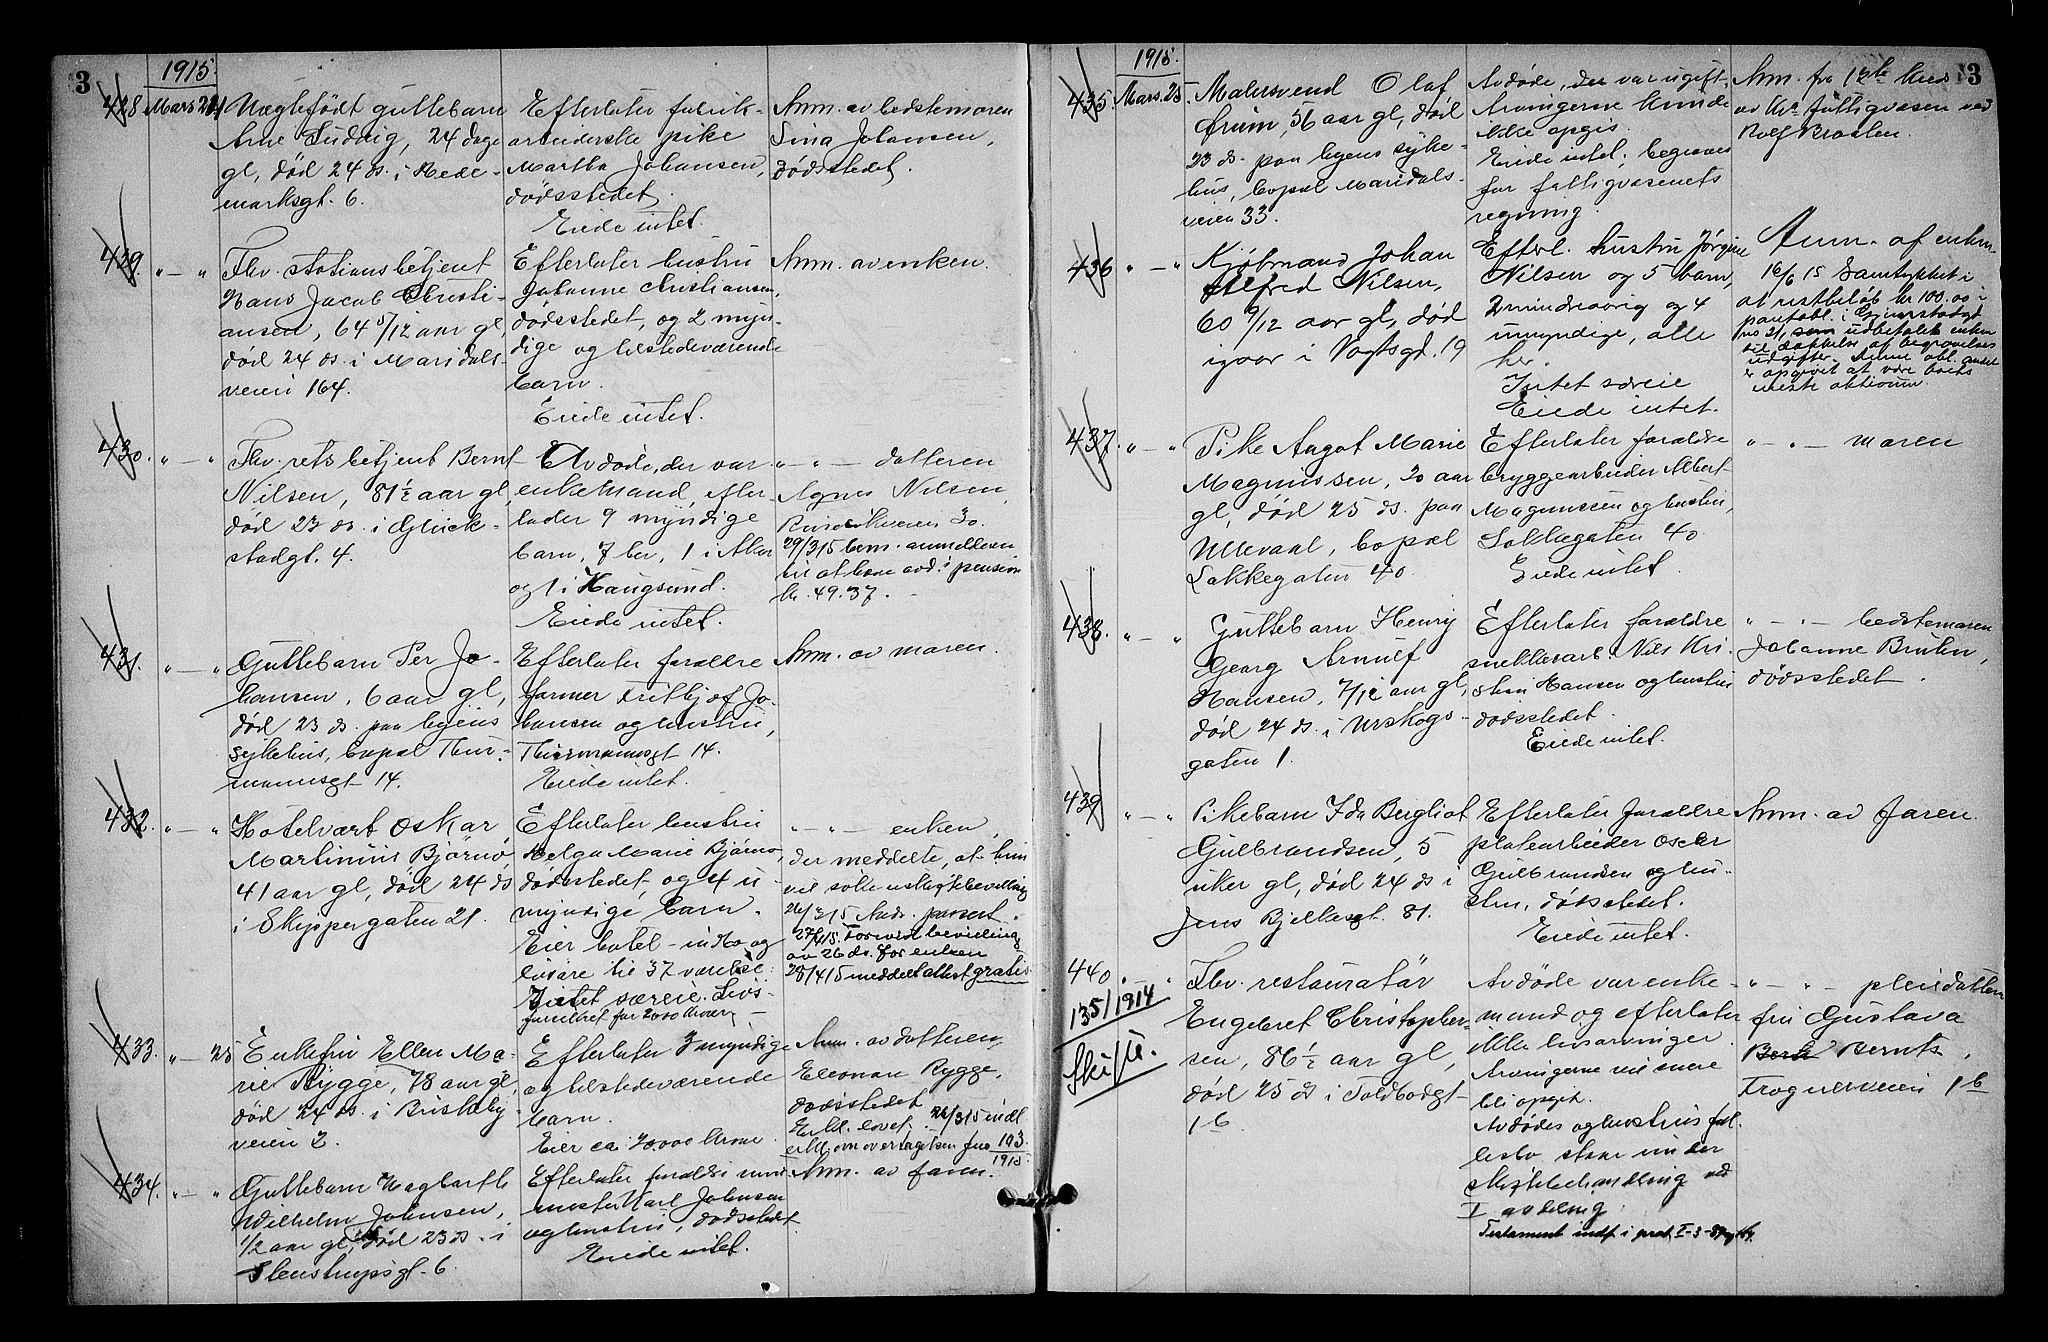 3
1915.
428
Mars 24
Uægtefødt guttebarn
Arne Ludvig, 24 dage
gl, død 24 ds. i Hede-
marksgt. 6.
Efterlater fabrik-
arbeiderske pike
Martha Johansen,
dødsstedet
Eiede intet.
Anm. av bedstemoren
Lina Johansen,
dødsstedet.
429.
" — "
Fhv. stationsbetjent
Hans Jacob Christi-
ansen, 64 5/12 aar gl,
død 24 ds. i Maridals-
veien 164.
Efterlater hustru
Johanne Christiansen,
dødsstedet, og 2 myn-
dige og tilstedeværende
barn.
Eiede intet.
Anm. av enken.
430.
" — "
Fhv. retsbetjent Bernt
Nilsen, 81½ aar gl,
død 23 ds. i Glück-
stadgt. 4.
Avdøde, der var
enkemand, efter-
lader 9 myndige
barn, 7 her, 1 i Aker
og 1 i Haugsund.
Eiede intet.
" — " — datteren
Agnes Nilsen,
30.
29/3 15 bem. anmeldersen
til at hæve avd.s pension
kr. 49.37.
431.
" — "
Guttebarn Per Jo-
hansen, 6 aar gl,
død 23 ds. paa byens
sykehus, bopæl Thur-
mannsgt 14.
Efterlater forældre
farmer Frithjof Jo-
hansen og hustru,
Thurmannsgt 14.
Eiede intet.
Anm. av moren.
432.
" — "
Hotelvært Oskar
Martinius Bjørnø,
41 aar gl, død 24 ds
i Skippergaten 21.
Efterlater hustru
Helga Marie Bjørnø,
dødsstedet, og 4 u-
myndige barn.
Eier hotel-indbo og
løsøre til 37 værelser.
Intet særeie. Livs-
forsikret for 2000 kroner
" — " — enken,
der meddelte, at hun
vil søke uskiftebevilling
26/3 15
27/4 15. Forevist bevilling
av 26 ds. for enken
28/4 15 meddelt attest gratis
433.
" — 25
Enkefru Ellen Ma-
rie Rygge, 78 aar gl,
død 24 ds. i Briskeby-
veien 2.
Efterlater 3 myndige
og tilstedeværende
barn.
Eier ca. 70.000 kroner.
Anm. av datteren
Eleonore Rygge,
dødsstedet
Erkl. lovet. 26/3 15 indl.
erkl. om overtagelsen jno 193
1915.
434.
" — "
Guttebarn Hagbarth
Wilhelm Johnsen,
1/2 aar gl, død 23 ds. i
Stenstrupsgt. 6
Efterlater forældre mur-
mester Karl Johnsen
og hustru, dødsstedet
Eiede intet.
Anm. av faren.
3
1915.
435
Mars. 25.
Malersvend Olaf
Ørum, 56 aar gl, død
23 ds. paa byens syke-
hus, bopæl Maridals-
veien 33.
Avdøde, der var ugift.
Arvingerne kunde
ikke opgis.
Eiede intet; begraves
for fattigvæsenets
regning.
Anm. fra 13de kreds
av Kra fattigvæsen ved
Rolf Braaten.
436
" — "
Kjøbmand Johan
Alfred Nilsen,
60 9/12 aar gl, død
igaar i Vogtsgd. 19
Efterl. hustru Jørgine
Nilsen og 5 barn,
2 mindreaarig og 4
umyndige, alle
her.
Intet særeie
Eiede intet.
Anm. af enken
16/6 15 Samtykket i
at restbeløb kr 100.00 i
pantobl. i
no 21, som udbetales enken
til dækkelse af begravelses
udgifter. Denne obl.
er opgivet at være boets
eneste aktivum.
437.
" — "
Pike Aagot Marie
Magnussen, 20 aar
gl, død 25 ds. paa
Ullevaal, bopæl
Lakkegaten 40
Efterlater forældre
bryggearbeider Albert
Magnussen og hustru,
Lakkegaten 40
Eiede intet.
" — " — moren
438.
" — "
Guttebarn Henry
Georg Arnulf
Hansen, 7/12 aar gl,
død 24 ds. i Urskogs-
gaten 1.
Efterlater forældre
snekkerarb. Nils Kri-
stian Hansen og hustru
dødsstedet.
Eiede intet.
" — " — bedstemoren
Johanne Bruun,
dødsstedet.
439
" — "
Pikebarn Ida Bergliot
Gulbrandsen, 5
uker gl, død 24 ds i
Jens Bjelkesgt. 81.
Efterlater forældre
platearbeider Oscar
Gulbrandsen og hu-
stru, dødsstedet.
Eiede intet.
Anm. av faren.
440.
"
135/1914
Skifte.
Fhv. restauratør
Engebret Christopher-
sen, 86½ aar gl,
død 25 ds i Toldbodgt.
1 b
Avdøde var enke-
mand og efterlater
ikke livsarvinger.
Arvingerne vil senere
bli opgit.
Avdødes og hustrus fæl-
lesbo staar under
skiftebehandling ved
I avdeling.
Testament indf. i prot. I-3-
" — " — pleiedatter
fru Gustava
Bernts,
Frognerveien 1 b